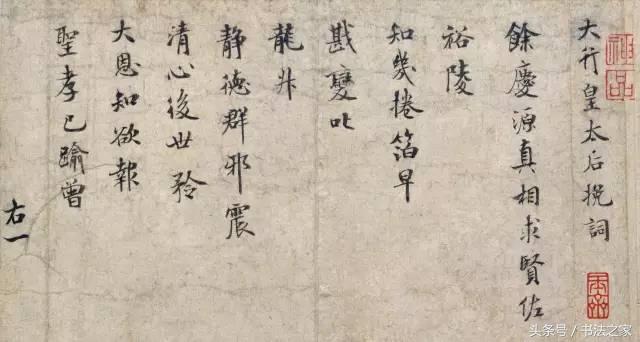 大行皇太后挽詞
餘慶源真相求賢佐
裕陵
知幾捲箔早
戡變叱
龍升
静德群邪震
清心後世矜
大恩知欲報
聖孝已踰曾
右一
头条号 / 书法之家